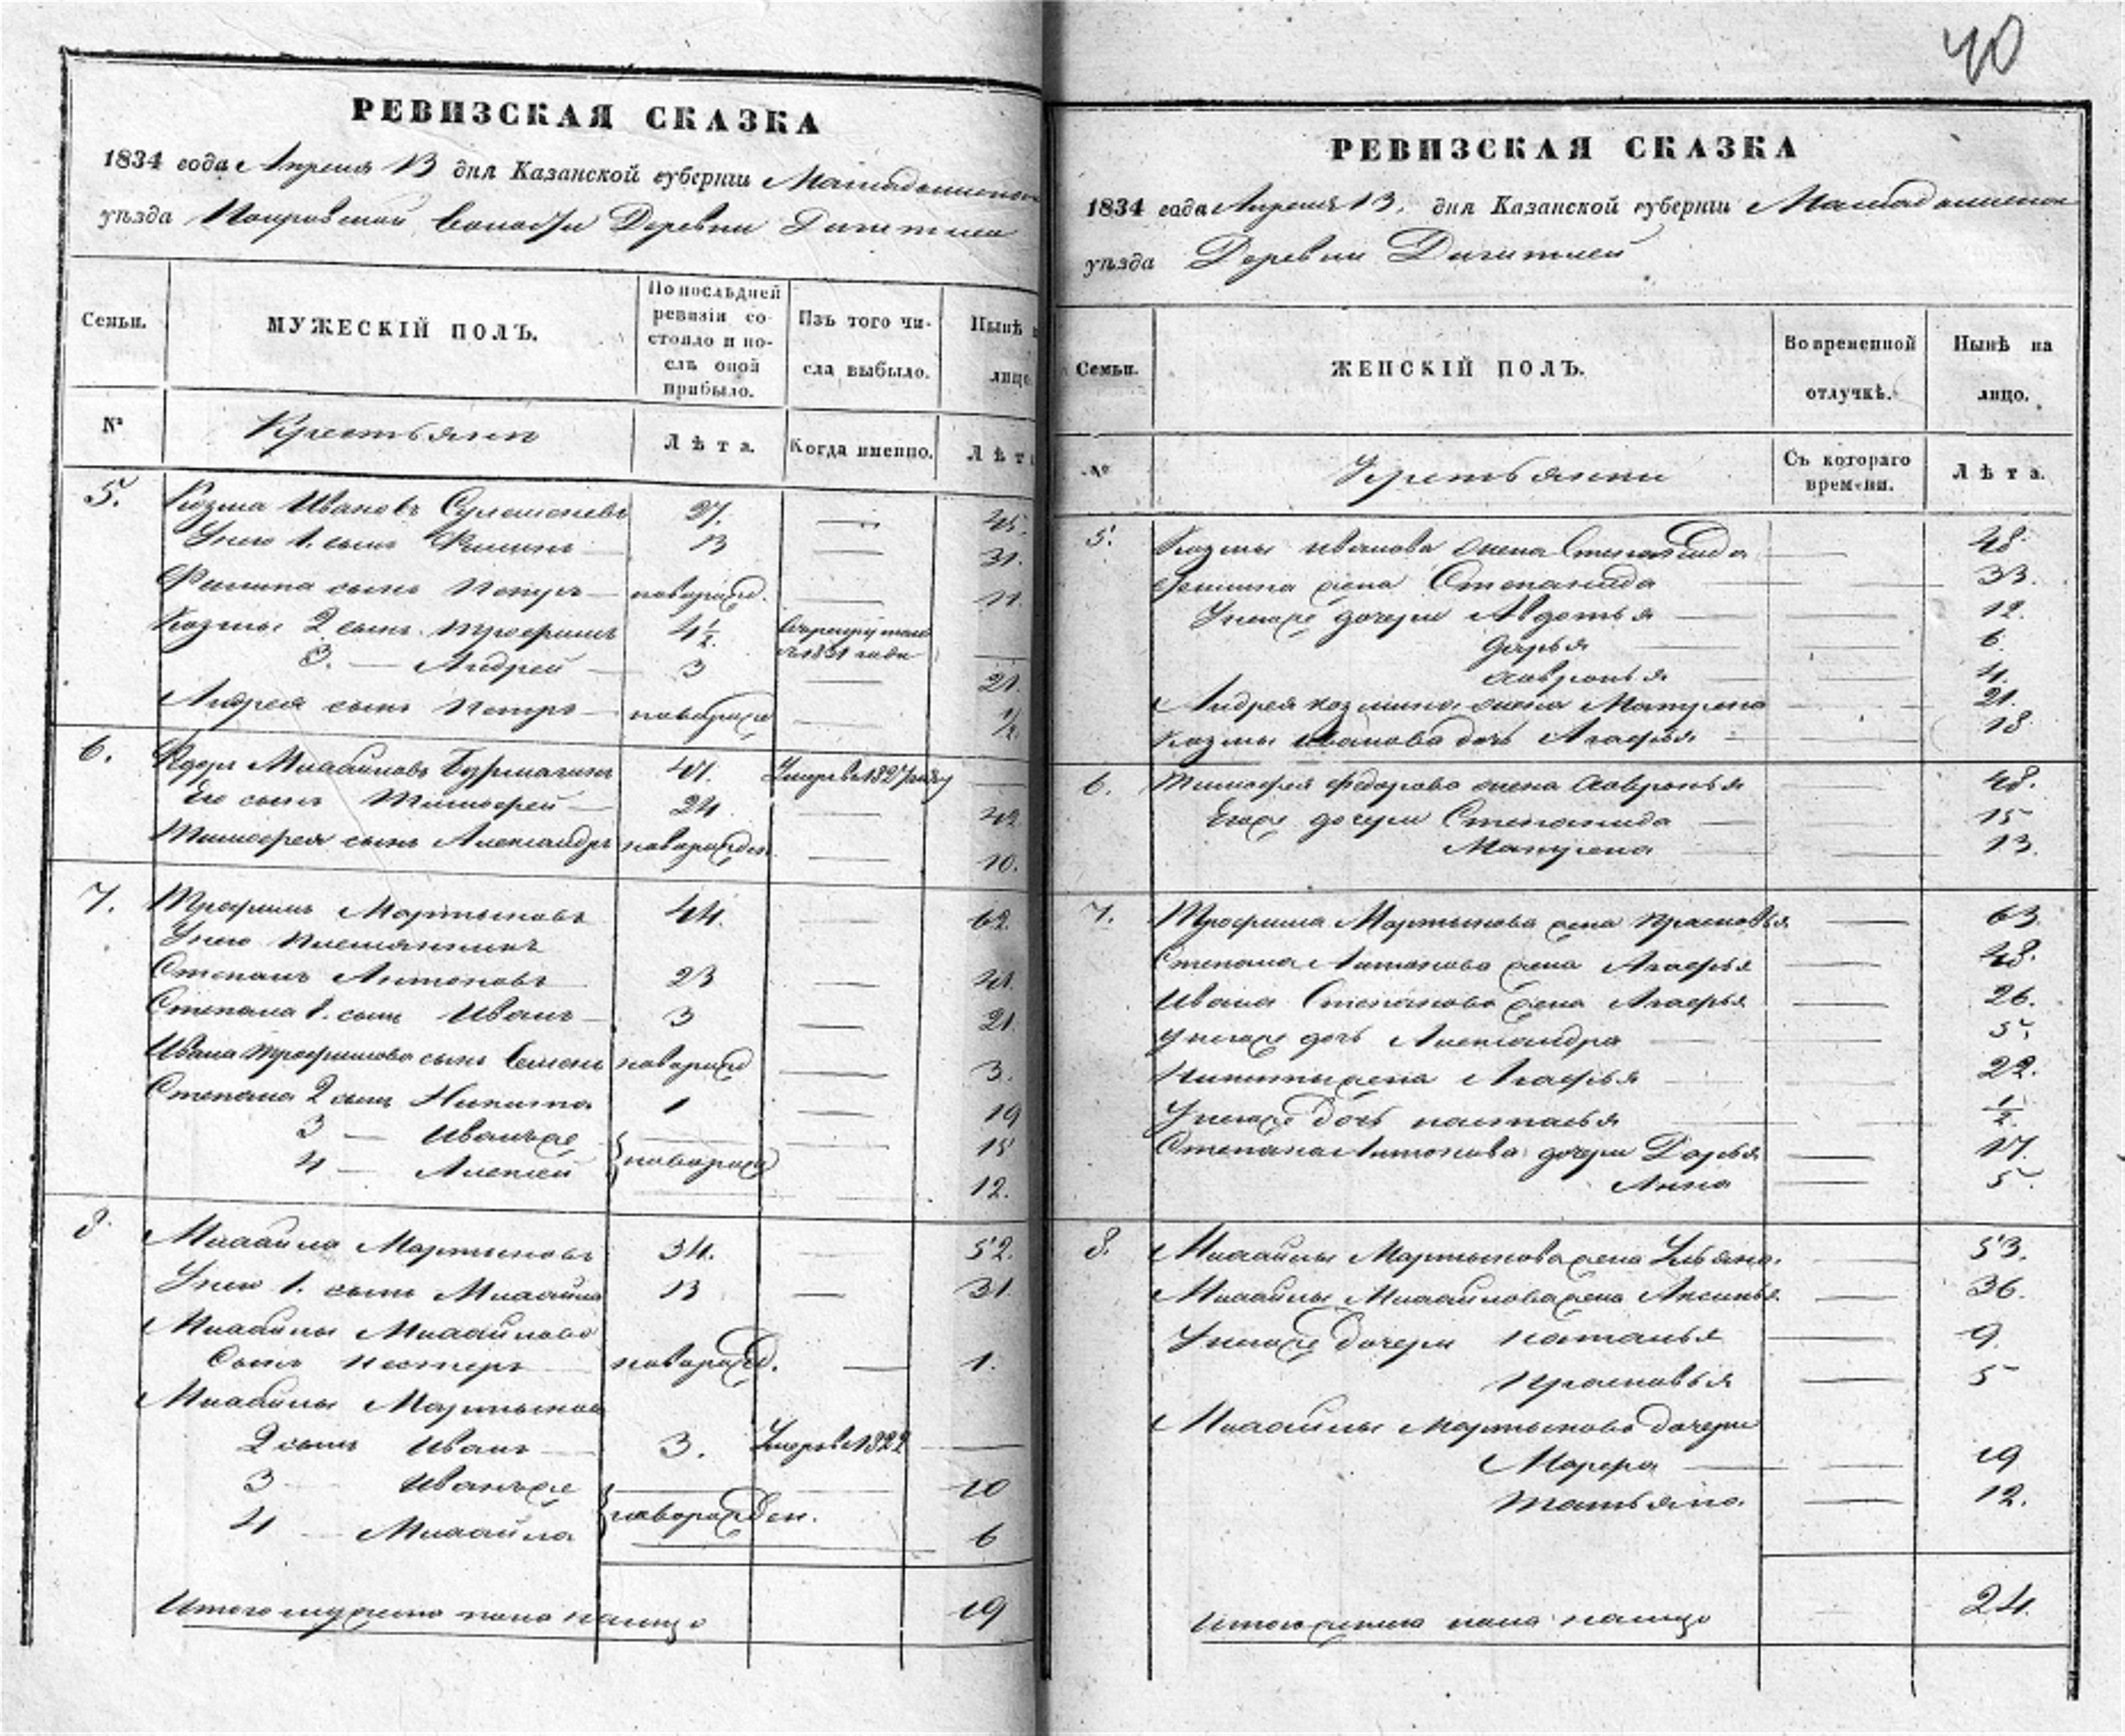 40
РЕВИЗСКАЯ СКАЗКА
1834 года Апреля 13 дня Казанской губернии Мамадышскаго
уѣзда Покровской Волости Деревни
Семьи.
МУЖЕСКІЙ ПОЛЪ.
По послѣдней ревизіи состояло и послѣ оной прибыло.
Изъ того числа выбыло.
Нынѣ на лицо.
№
Крестьяне
Лѣта.
Когда именно.
Лѣта
5. Козма Ивановъ 27. — 45.
У него 1. сынъ Филипъ — 13 — 31.
Филипа сынъ Петръ — новорожд. — 11.
Козмы 2 сынъ Трофимъ 4½ въ рекруты въ 1831 годе —
3. — Андрей — 3 — 21.
Андрея сынъ Петръ — новорожд — ½.
6. Федоръ Михайловъ Бурмагинъ 47. Умеръ в 1827 году —
Его сынъ Тимофей — 24 — 42
Тимофея сынъ Александръ новорожден — 10.
7. Трофимъ Мартыновъ 44. — 62.
У него племянникъ
Степанъ Антоновъ 23 — 41.
Степана 1. сынъ Иванъ — 3 — 21.
Ивана Трофимова сынъ Семенъ новорожд — 3.
Степана 2 сынъ Никита 1 — 19
3 — Иванъже — 15
4 — Алексей новорожд — 12.
8 Михайла Мартыновъ 34. — 52.
У него 1. сынъ Михайла 13 — 31.
Михайлы Михайлова
сынъ Нестеръ новорожд. — 1.
Михайлы Мартынова
2 сынъ Иванъ — 3. Умеръ в 1822 —
3 — Иванъже — 10
4 — Михайла новорожден. 6
Итого мужеска пола налицо 19
РЕВИЗСКАЯ СКАЗКА
1834 года Апреля 13. дня Казанской губернии Мамадышскаго
уѣзда Деревни
Семьи.
ЖЕНСКІЙ ПОЛЪ.
Во временной отлучкѣ.
Нынѣ на лицо.
№
Крестьянки
Съ котораго времени.
Лѣта.
5. Козмы Иванова жена Степанида — 48.
Филипа жена Степанида — 33.
У негоже дочери Авдотья — 12.
Дарья — 6.
Хавронья — 4.
Андрея Козмина жена Матрена — 21.
Козмы Иванова дочь Агафья — 18
6. Тимофея Федорова жена Хавронья — 48.
Егоже дочери Степанида — 15
Матрена — 13.
7. Трофима Мартынова жена Прасковья — 63.
Степана Антонова жена Агафья — 48.
Ивана Степанова жена Агафья — 26.
У негоже дочь Александра — 5.
Никиты жена Агафья — 22.
У негоже дочь Настасья — ½.
Степана Антонова дочери Дарья — 17.
Анна — 5.
8. Михайлы Мартынова жена Ульяна — 53.
Михайлы Михайлова жена Аксинья — 36.
У негоже дочери Наталья — 9.
Прасковья — 5
Михайлы Мартынова дочери
Марфа — 19
Татьяна — 12.
Итого женска пола налицо — 24.